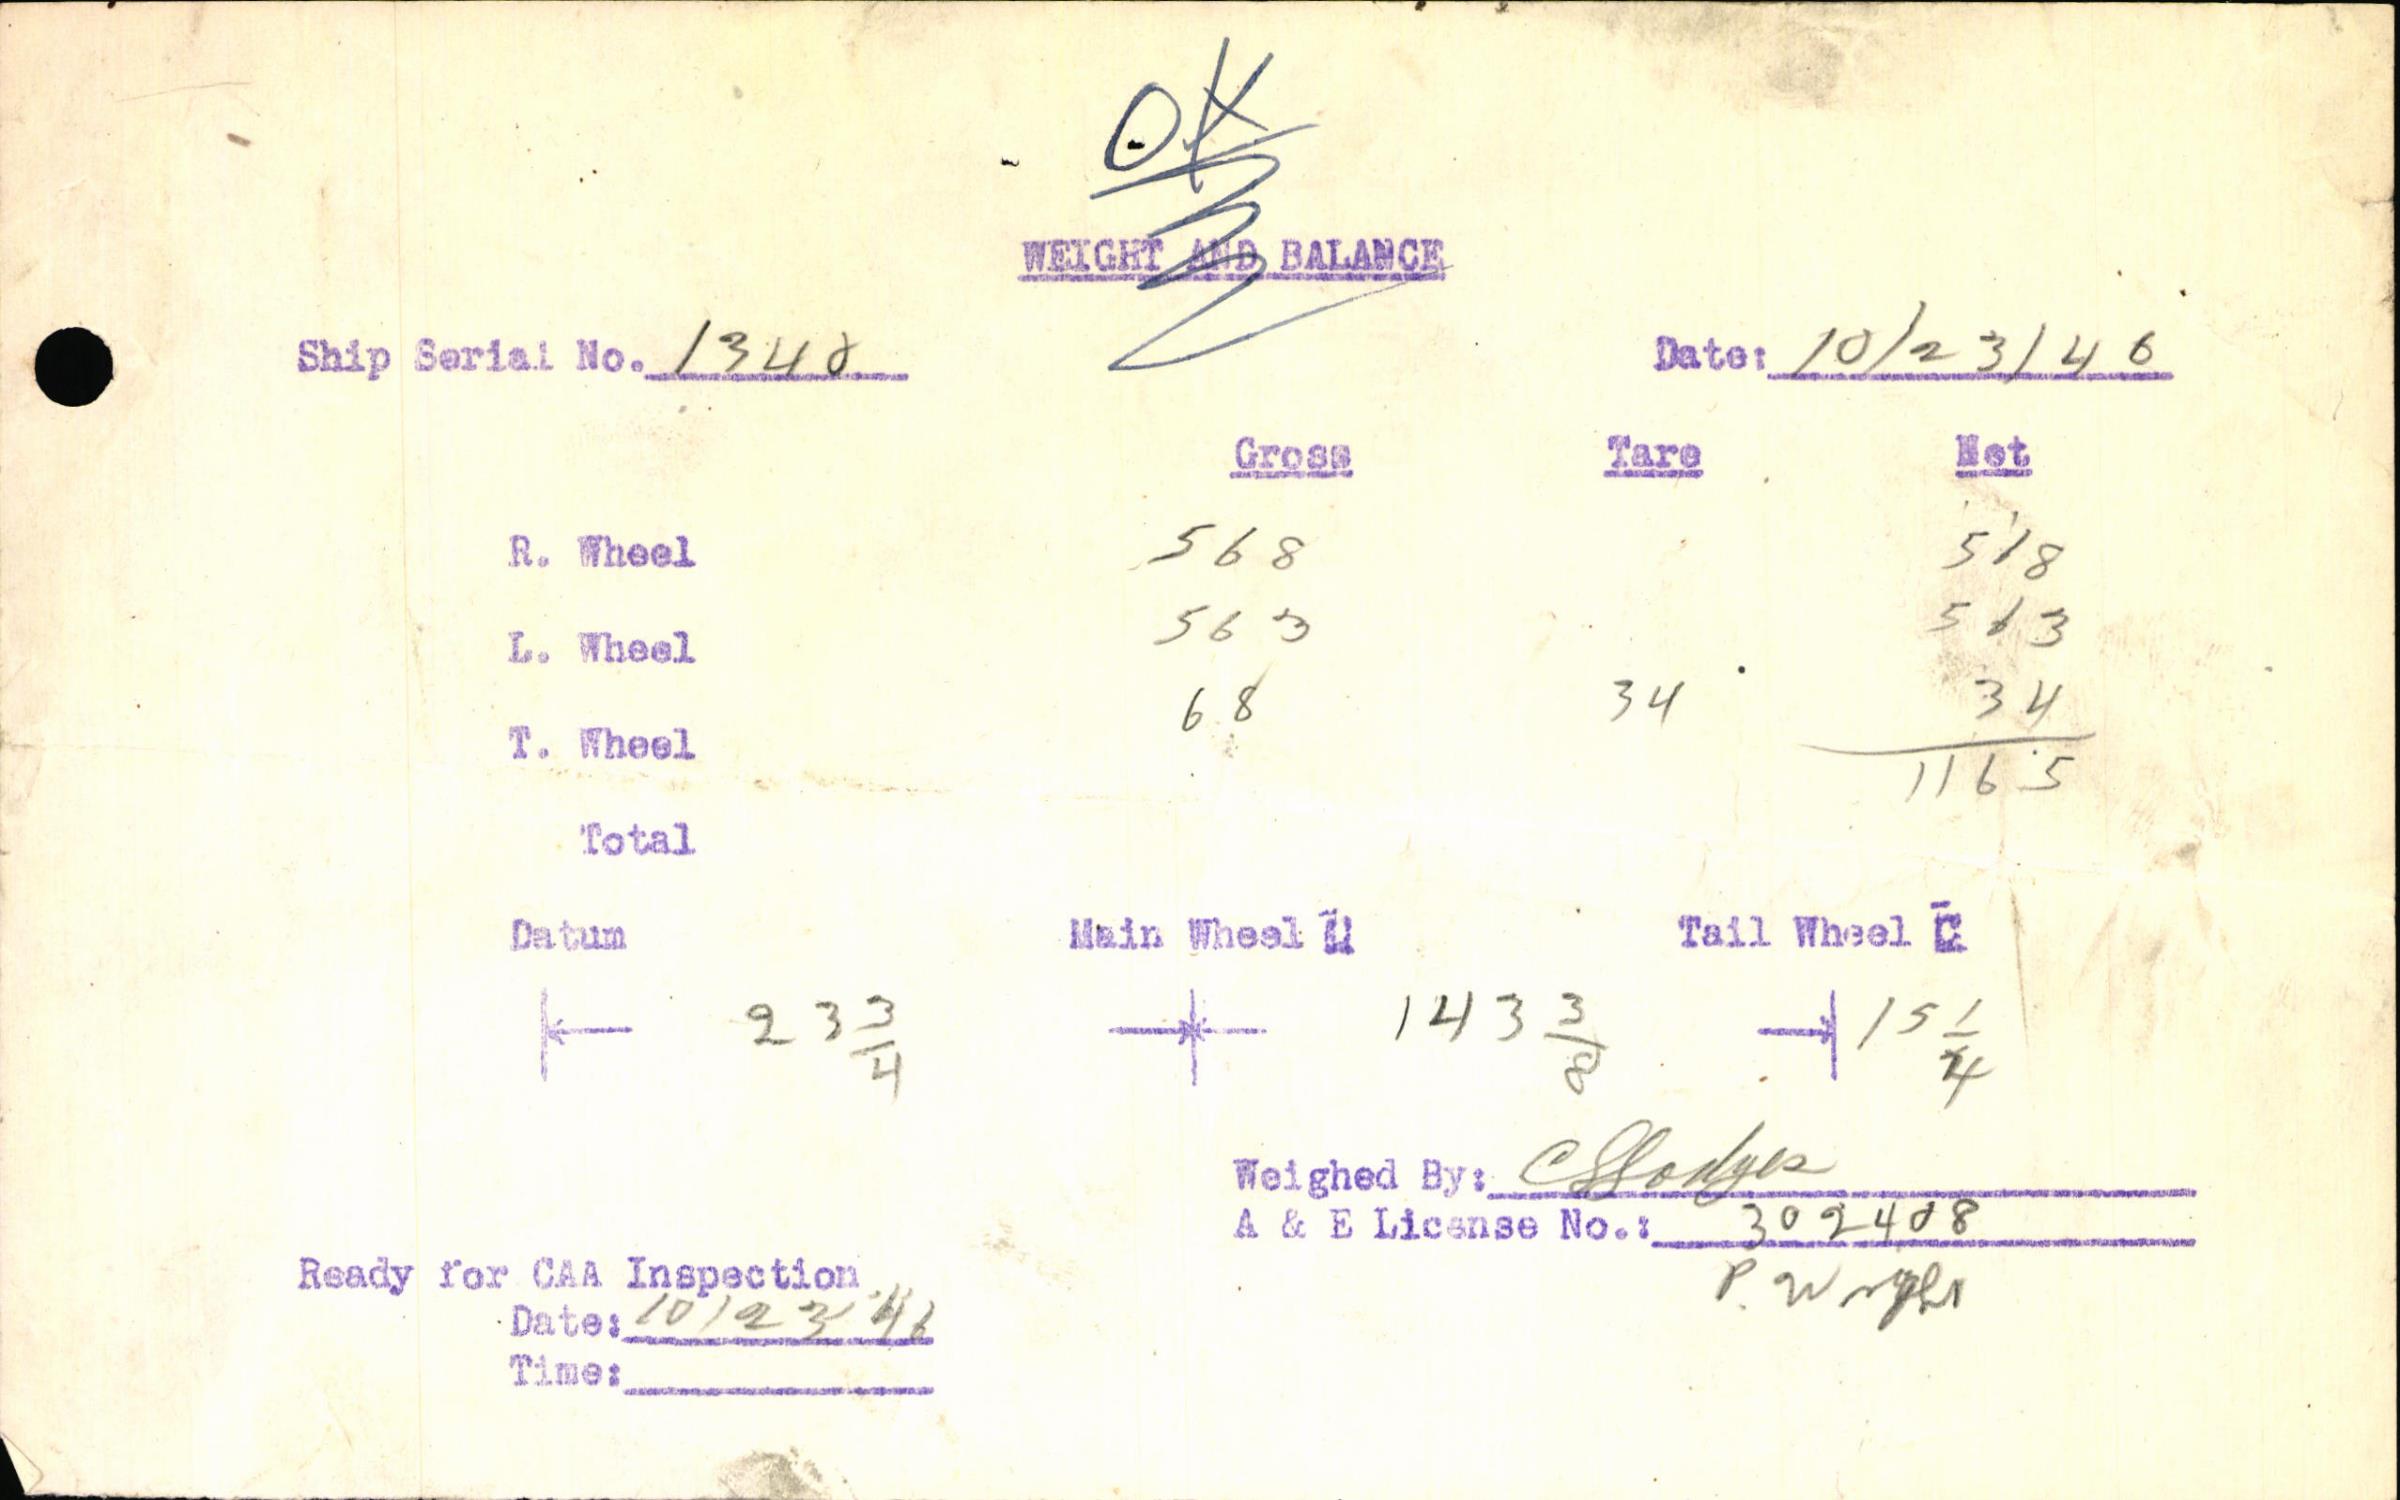 OK
WEIGHT AND BALANCE
Ship Serial No. 1340 Date: 10/23/46
Gross Tare Net
R. Wheel 568 568
L. Wheel 563 563
T. Wheel 68 34 34
Total 1165
Datum Main Wheel ℄ Tail Wheel ℄
23 3/4 143 3/8 15 1/4
Weighed By: C Hodges
A & E License No.: 302408
P. Wright
Ready for CAA Inspection
Date: 10/23/46
Time: